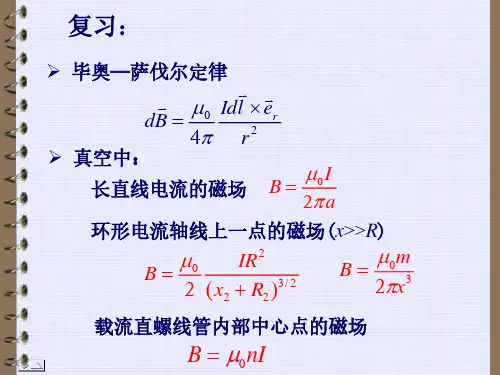 复习：
➢ 毕奥—萨伐尔定律
$d\vec{B} = \frac{\mu_0}{4\pi} \frac{Id\vec{l} \times \vec{e}_r}{r^2}$
➢ 真空中：
长直线电流的磁场 $B = \frac{\mu_0 I}{2\pi a}$
环形电流轴线上一点的磁场(x>>R)
$B = \frac{\mu_0}{2} \frac{IR^2}{(x_2 + R_2)^{3/2}}$ $B = \frac{\mu_0 m}{2\pi x^3}$
载流直螺线管内部中心点的磁场
$B = \mu_0 nI$